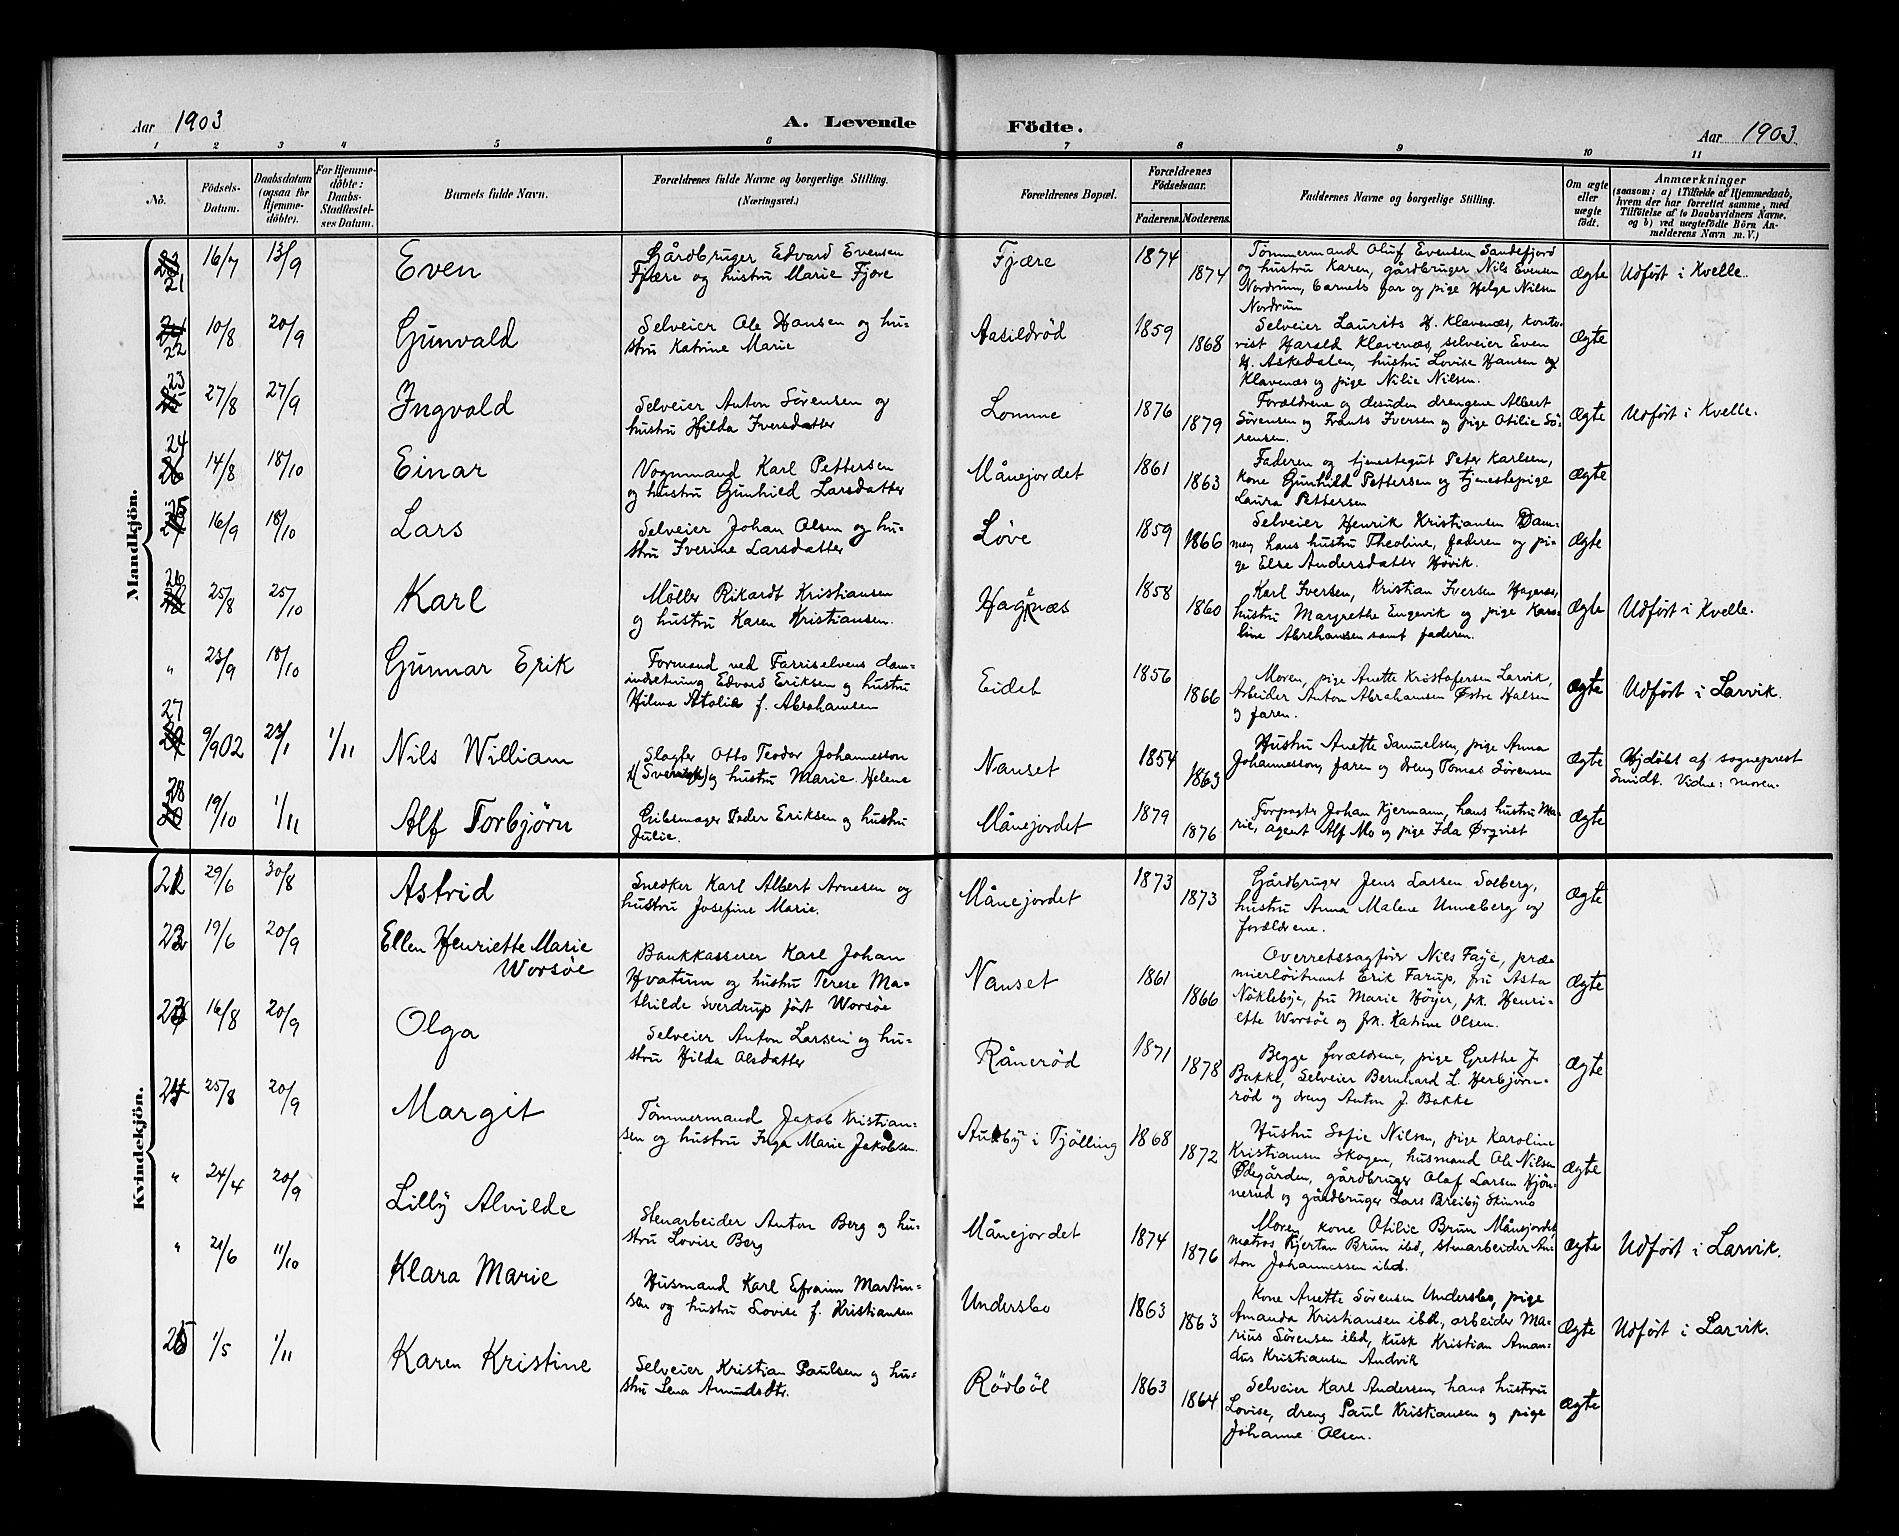 Aar 1903
A. Levende Födte.
Aar 1903
1 2 3 4 5 6 7 8 9 10 11
No.
Födsels-
Datum.
Daabsdatum
(ogsaa for
Hjemme-
döbte).
For Hjemme-
döbte:
Daabs-
Stadfæstel-
ses Datum.
Barnets fulde Navn.
Forældrenes fulde Navne og borgerlige Stilling.
(Næringsvei.)
Forældrenes Bopæl.
Forældrenes
Födselsaar.
Faderens. Moderens.
Faddernes Navne og borgerlige Stilling.
Om ægte
eller
uægte
födt.
Anmærkninger
(saasom: a) i Tilfælde af Hjemmedaab,
hvem der har forrettet samme, med
Tilföielse af to Daabsvidners Navne.
og b) ved uægtefödte Börn An-
melderens Navn m. V.)
Mandkjön.
21
16/7
13/9
Even
Gårdbruger Edvard Evensen
Fjære og hustru Marie Fjøre
Fjære
1874
1874
Tømmermand Oluf Evensen Sandefjord
og hustru Karen, gårdbruger Nils Evensen
Nordrum, barnets far og pige Helga Nilsen
Nordrum
Ægte
Udført i Kvelle.
22
10/8
20/9
Gunvald
Selveier Ole Hansen og hu-
stru Katrine Marie
Aasildrød
1859
1868
Selveier Laurits H. Klavenæs, konto-
rist Harald Klavenæs, selveier Even
H. Askedalen, hustru Lovise Hansen og
Klavenæs og pige Nilie Nilsen.
Ægte
23
27/8
27/9
Ingvald
Selveier Anton Sørensen og
hustru Hilda Iversdatter
Lomme
1876
1879
Forældrene og desuden drengene Albert
Sørensen og Frants Iversen og pige Otilie Sö-
rensen.
Ægte
Udført i Kvelle.
24
14/8
18/10
Einar
Vognmand Karl Pettersen
og hustru Gunhild Larsdatter
Månejordet
1861
1863
Faderen og tjenestegut Peter Karlsen,
kone Gunhild Pettersen og tjenestepige
Laura Pettersen
Ægte
25
16/9
18/10
Lars
Selveier Johan Olsen og hu-
stru Iverine Larsdatter
Løve
1859
1866
Selveier Henrik Kristiansen Dam-
men, hans hustru Theoline, faderen og pi-
ge Else Andersdatter Høvik.
Ægte
26
25/8
25/10
Karl
Møller Rikardt Kristiansen
og hustru Karen Kristiansen.
Hagnæs
1858
1860
Karl Iversen, Kristian Iversen Hagenæs,
hustru Margrethe Engevik og pige Karo-
line Abrahamsen samt faderen.
Ægte
Udført i Kvelle.
"
23/9
18/10
Gunnar Erik
Formand ved Farriselvens dam-
indretning Edvard Eriksen og hustru
Hilma Atalie f. Abrahamsen
Eidet
1856
1866
Moren, pige Anette Kristofersen Larvik,
Arbeider Anton Abrahamsen Østre Halsen
og faren.
Ægte
Udført i Larvik.
27
9/9 02
23/1
1/11
Nils William
Slagter Otto Teodor Johannesson
(Sverige) og hustru Marie Helene
Nanset
1854
1863
Hustru Anette Samuelsen, pige Anna
Johannesson, faren og dreng Tomas Sørensen
Ægte
Hjdøbt af sogneprest
Smidt. Vidne: moren.
28
19/10
1/11
Alf Torbjörn
Gibsmager Peder Eriksen og hustru
Julie.
Månejordet
1879
1876
Forpagter Johan Kjermann, hans hustru Ma-
rie, agent Alf Mo og pige Ida Ørqvist
Ægte
Kvindekjön.
21
29/6
30/8
Astrid
Snedker Karl Albert Arnesen og
hustru Josefine Marie.
Månejordet
1873
1873
Gårdbruger Jens Larsen Solberg,
hustru Anna Malene Unneberg og
forældrene.
Ægte
22
19/6
20/9
Ellen Henriette Marie
Worsöe
Bankkasserer Karl Johan
Hvatum og hustru Terese Ma-
thilde Sverdrup født Worsöe
Nanset
1861
1866
Overretssagfører Nils Faye, præ
mierlöitnant Erik Farup, fru Asta
Nöklebye, fru Marie Höyer, frk. Henri-
ette Worsöe og frk. Katrine Olsen.
Ægte
23
16/8
20/9
Olga
Selveier Anton Larsen og hu-
stru Hilda Olsdatter
Rånerød
1871
1878
Begge forældrene, pige Grethe J.
Bakke, Selveier Bernhard L. Herbjörn-
rød og dreng Anton J. Bakke
Ægte
24
25/8
20/9
Margit
Tømmermand Jakob Kristian-
sen og hustru Inga Marie Jakobsen.
Auby i Tjölling
1868
1872
Hustru Sofie Nilsen, pige Karoline
Kristiansen Skogen, husmand Ole Nilsen
Ødegården, gårdbruger Olaf Larsen Hjön-
nerud og gårdbruger Lars Breiby Stinmo
Ægte
"
24/4
20/9
Lilly Alvilde
Stenarbeider Anton Berg og hu-
stru Lovise Berg
Månejordet
1874
1876
Moren, kone Otilie Brun Månejordet,
matros Kjertan Brun ibd, stenarbeider An-
ton Johannessen ibd.
Ægte
Udført i Larvik.
"
21/6
11/10
Klara Marie
Husmand Karl Efraim Martin-
sen og hustru Lovise f. Kristiansen
Undersbo
1863
1863
Kone Anette Sørensen Undersbo, pige
Amanda Kristiansen ibd, arbeider Ma-
rius Sørensen ibd, kusk Kristian Aman-
dus Kristiansen Andvik
Ægte
Udført i Larvik.
25
1/5
1/11
Karen Kristine
Selveier Kristian Paulsen og hu-
stru Lena Amundsdtr.
Rödböl
1863
1864
Selveier Karl Andersen, hans hustru
Lovise, dreng Paul Kristiansen og pige
Johanne Olsen.
Ægte